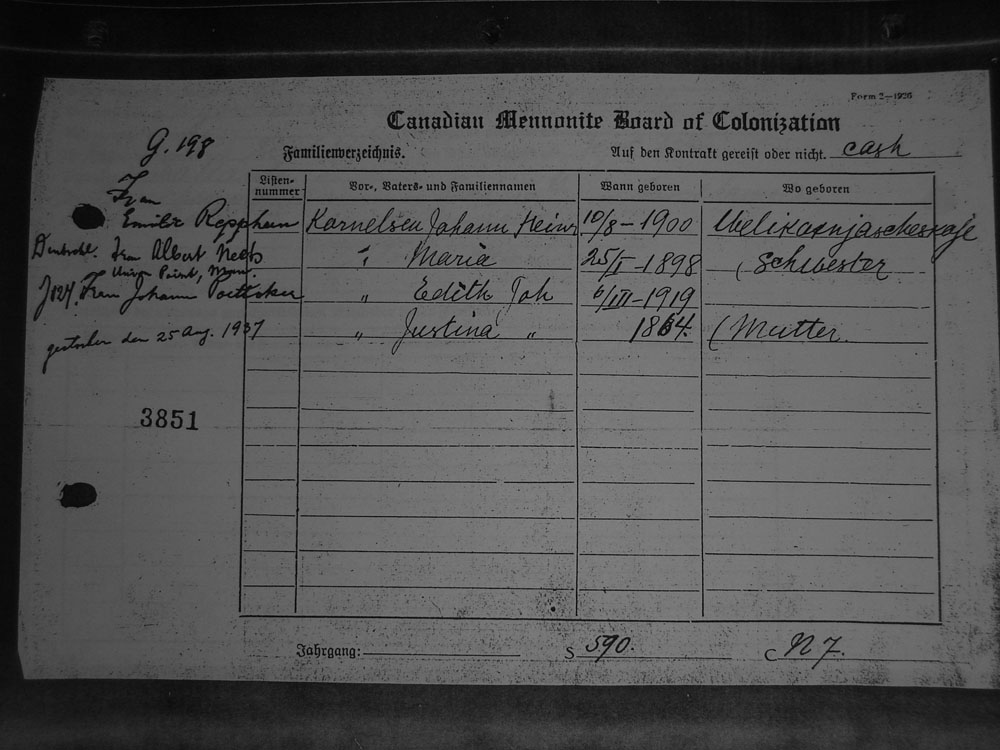 Form 2—1926
Canadian Mennonite Board of Colonization
G. 198
Familienverzeichnis.
Auf den Kontrakt gereist oder nicht. cash
Listen-nummer Vor-, Vaters- und Familiennamen Wann geboren Wo geboren
Frau
Kornelsen Johann Heinr 10/8-1900
Frau Albert " Maria 25/I-1898 (Schwester
Point, Man.
J124. Frau Johann " Edith Joh 6/III-1919
" Justina " 1864. (Mutter.
gestorben den 25 Aug. 1937
3851
Jahrgang: S 590. C N 7.